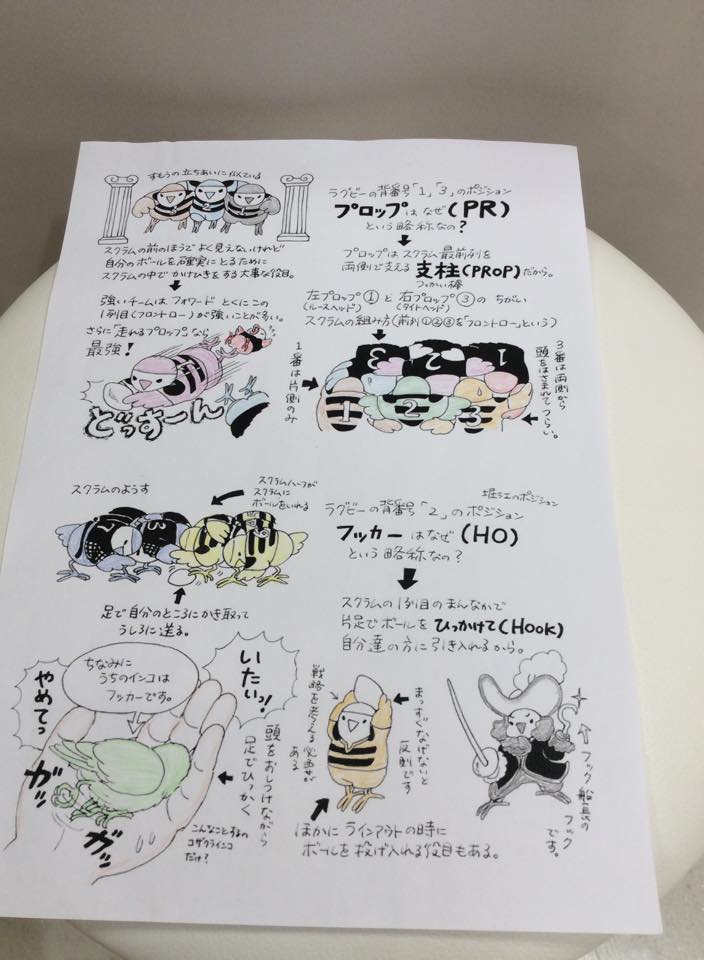 すもうの立ちあいに似ている
スクラムの前のほうでよく見えないけれど
自分のボールを確実にとるために
スクラムの中でかけひきをする大事な役目。
強いチームはフォワードとくにこの
1列目(フロントロー)が強いことが多い。
さらに「走れるプロップ」なら
最強!
どっすーん
ラグビーの背番号「1」「3」のポジション
プロップはなぜ(PR)
という略称なの?
プロップはスクラム最前列を
両側で支える支柱(PROP)だから。
つっかい棒
左プロップ①と右プロップ③のちがい
(ルースヘッド)
(タイトヘッド)
スクラムの組み方(前列①②③を「フロントロー」という)
1番は片側のみ
3
2
1
1
2
3
3番は両側から
頭をはさまれてつらい。
スクラムのようす
スクラムハーフが
スクラムに
ボールをいれる
足で自分のところにかき取って
うしろに送る。
堀江のポジション
ラグビーの背番号「2」のポジション
フッカーはなぜ(HO)
という略称なの?
スクラムの1列目のまんなかで
片足でボールをひっかけて(HOOK)
自分達の方に引き入れるから。
ちなみに
うちのインコは
フッカーです。
いたいっ!
やめてっ
ガッ
ガッ
頭をおしつけながら
足でひっかく
こんなことするの
コザクラインコ
だけ?
まっすぐなげないと
反則です
戦略を考える必要が
ある
ほかにラインアウトの時に
ボールを投げ入れる役目もある。
フック船長の
フック
です。